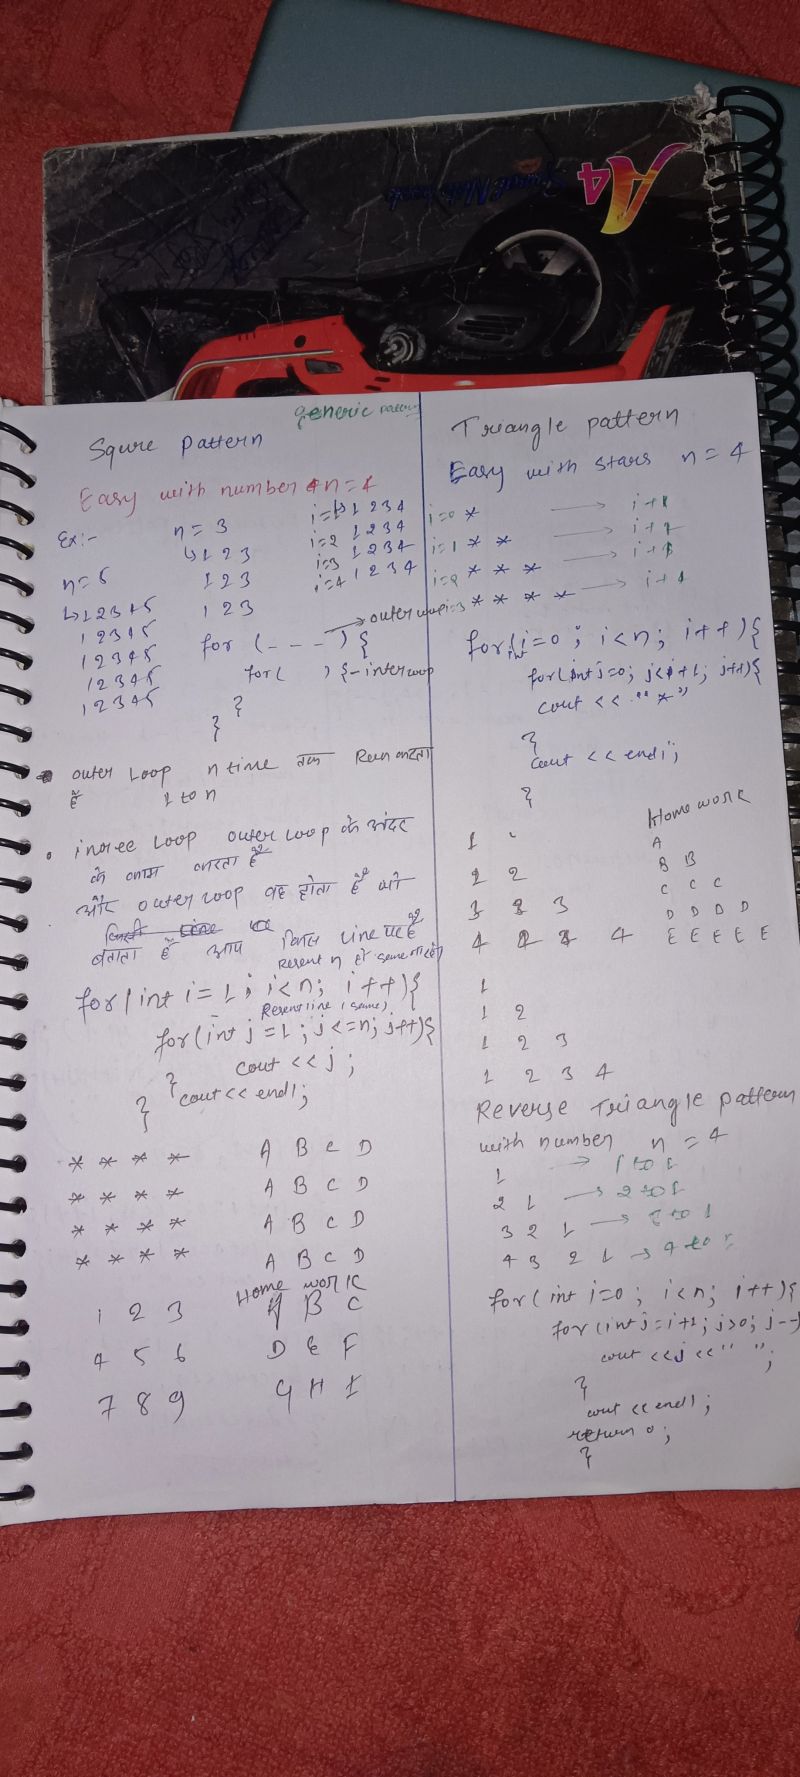 A4
Spiral Note book
generic pattern
Squre Pattern
Easy with number n=4
Ex:- n = 3
↳ 1 2 3
1 2 3
1 2 3
i=1 1 2 3 4
i=2 1 2 3 4
i=3 1 2 3 4
i=4 1 2 3 4
n=5
↳ 1 2 3 4 5
1 2 3 4 5
1 2 3 4 5
1 2 3 4 5
1 2 3 4 5
for (- - - ) { → outer loop
for( ) { - inter loop
}
}
outer Loop n time तक Run करता
है 1 to n
inree Loop outer loop के अंदर
के काम करता है
और outer loop वह होता है जो
बताता है आप किस line पर है
Resent n हो same
for(int i = 1; i<n; i++){
Resent line (same)
for(int j = 1; j<=n; j++){
cout << j;
}
cout << endl;
}
* * * * A B C D
* * * * A B C D
* * * * A B C D
* * * * A B C D
Home work
1 2 3 A B C
4 5 6 D E F
7 8 9 G H I
Triangle pattern
Easy with stars n = 4
i=0 * → i+1
i=1 * * → i+1
i=2 * * * → i+1
i=3 * * * * → i+1
for(int i=0; i<n; i++){
for(int j=0; j<i+1; j++){
cout << "*"
}
cout << endl;
}
Home work
1 A
2 2 B B
3 3 3 C C C
4 4 4 4 D D D D
E E E E E
1
1 2
1 2 3
1 2 3 4
Reverse Triangle pattern
with number n = 4
1 → 1 to 1
2 1 → 2 to 1
3 2 1 → to 1
4 3 2 1 → 4 to
for(int i=0; i<n; i++){
for(int j=i+1; j>0; j--
cout <<j<<" ";
}
cout << endl;
return 0;
}